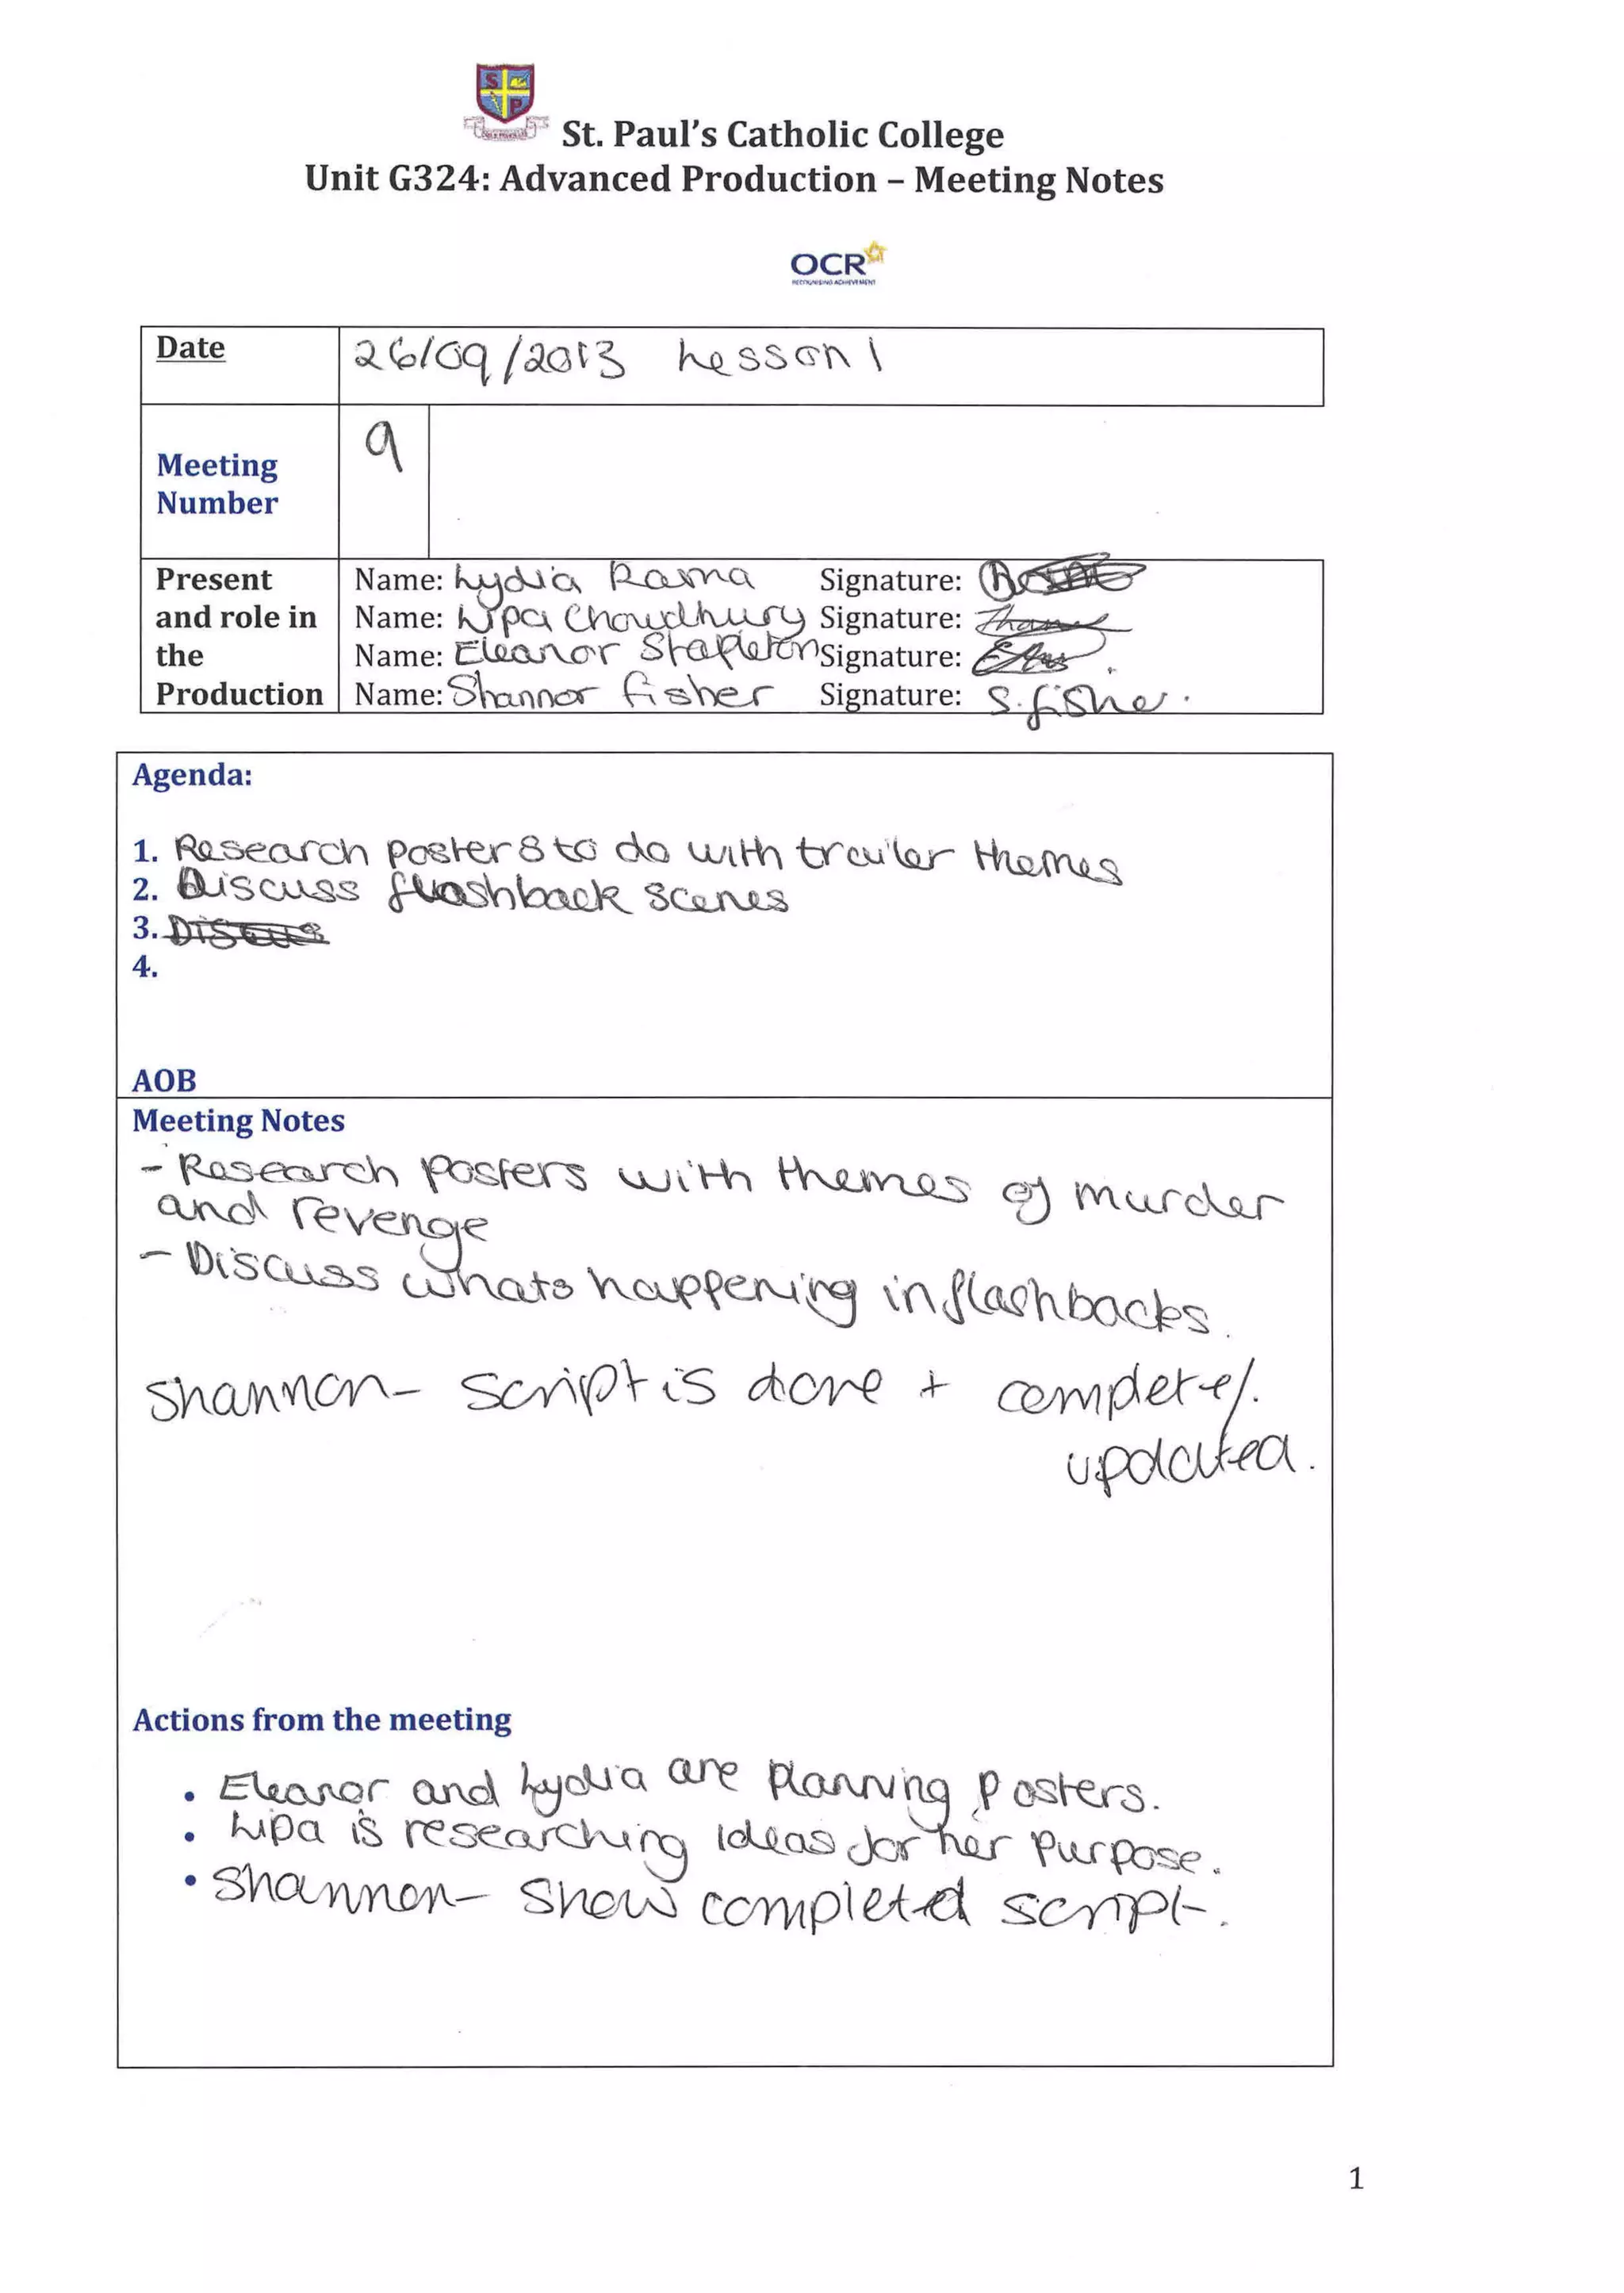 St. Paul's Catholic College
Unit G324: Advanced Production – Meeting Notes
OCR
RECOGNISING ACHIEVEMENT
Date 26/09/2013 Lesson 1
Meeting Number 9
Present and role in the Production
Name: Lydia Rama Signature:
Name: Lipa Choudhury Signature:
Name: Eleanor Stapleton Signature:
Name: Shannor Fisher Signature: S.fisher.
Agenda:
1. Research posters to do with trailer themes
2. Discuss flashback scenes
3.
4.
AOB
Meeting Notes
- Research posters with themes of murder
and revenge
- Discuss whats happening in flashbacks.
Shannon- script is done + complete/.
updated.
Actions from the meeting
• Eleanor and Lydia are planning posters.
• Lipa is researching ideas for her purpose.
• Shannon- show completed script.
1